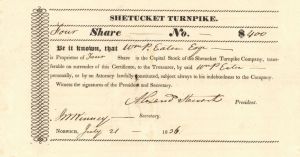 SHETUCKET TURNPIKE.
Four Share No. $400
Be it known, that Wm P. Eaton Esqr
is Proprietor of Four Share in the Capital Stock of the Shetucket Turnpike Company, trans-
ferable on surrender of this Certificate, to the Treasurer, by said Wm P. Eaton
personally, or by an Attorney lawfully constituted, subject always to his indebtedness to the Company.
Witness the signatures of the President and Secretary.
President.
Secretary.
NORWICH, July 21 1836